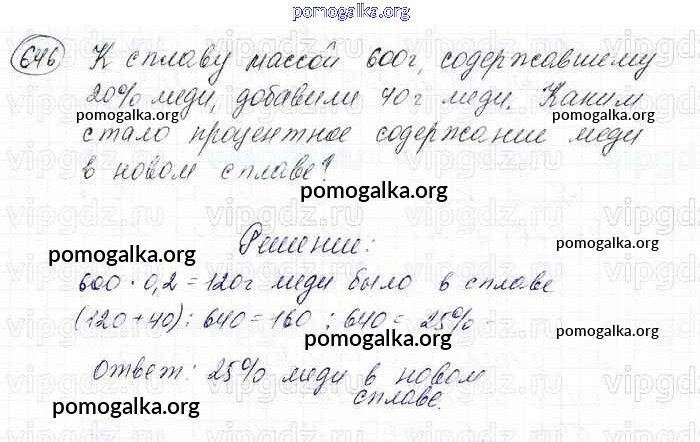 pomogalka.org
646 К сплаву массой 600г, содержавшему
20% меди, добавили 40г меди. Каким
pomogalka.org pomogalka.org
стало процентное содержание меди
в новом сплаве?
pomogalka.org
vipgdz.ru
Решение:
pomogalka.org
600 · 0,2 = 120г меди было в сплаве
(120+40) : 640 = 160 : 640 = 25%
Ответ: 25% меди в новом
сплаве.
pomogalka.org pomogalka.org